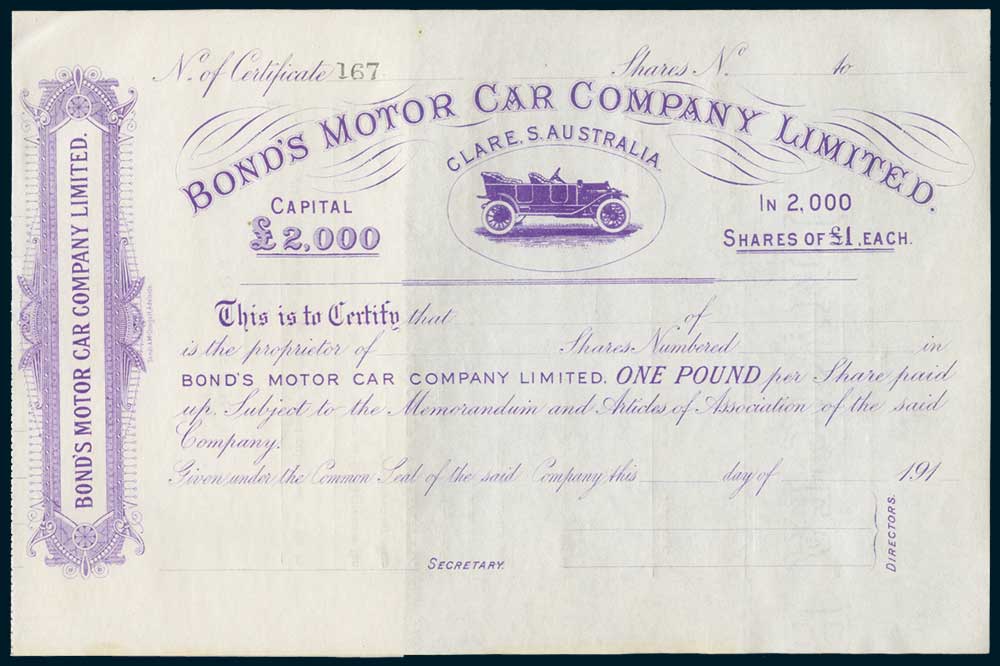 No. of Certificate 167 Shares No. to
BOND'S MOTOR CAR COMPANY LIMITED.
CLARE. S. AUSTRALIA.
CAPITAL
£2,000
IN 2,000
SHARES OF £1, EACH.
This is to Certify that of
is the proprietor of Shares Numbered in
BOND'S MOTOR CAR COMPANY LIMITED. ONE POUND per Share paid
up. Subject to the Memorandum and Articles of Association of the said
Company.
Given under the Common Seal of the said Company this day of 191
SECRETARY.
DIRECTORS.
BOND'S MOTOR CAR COMPANY LIMITED.